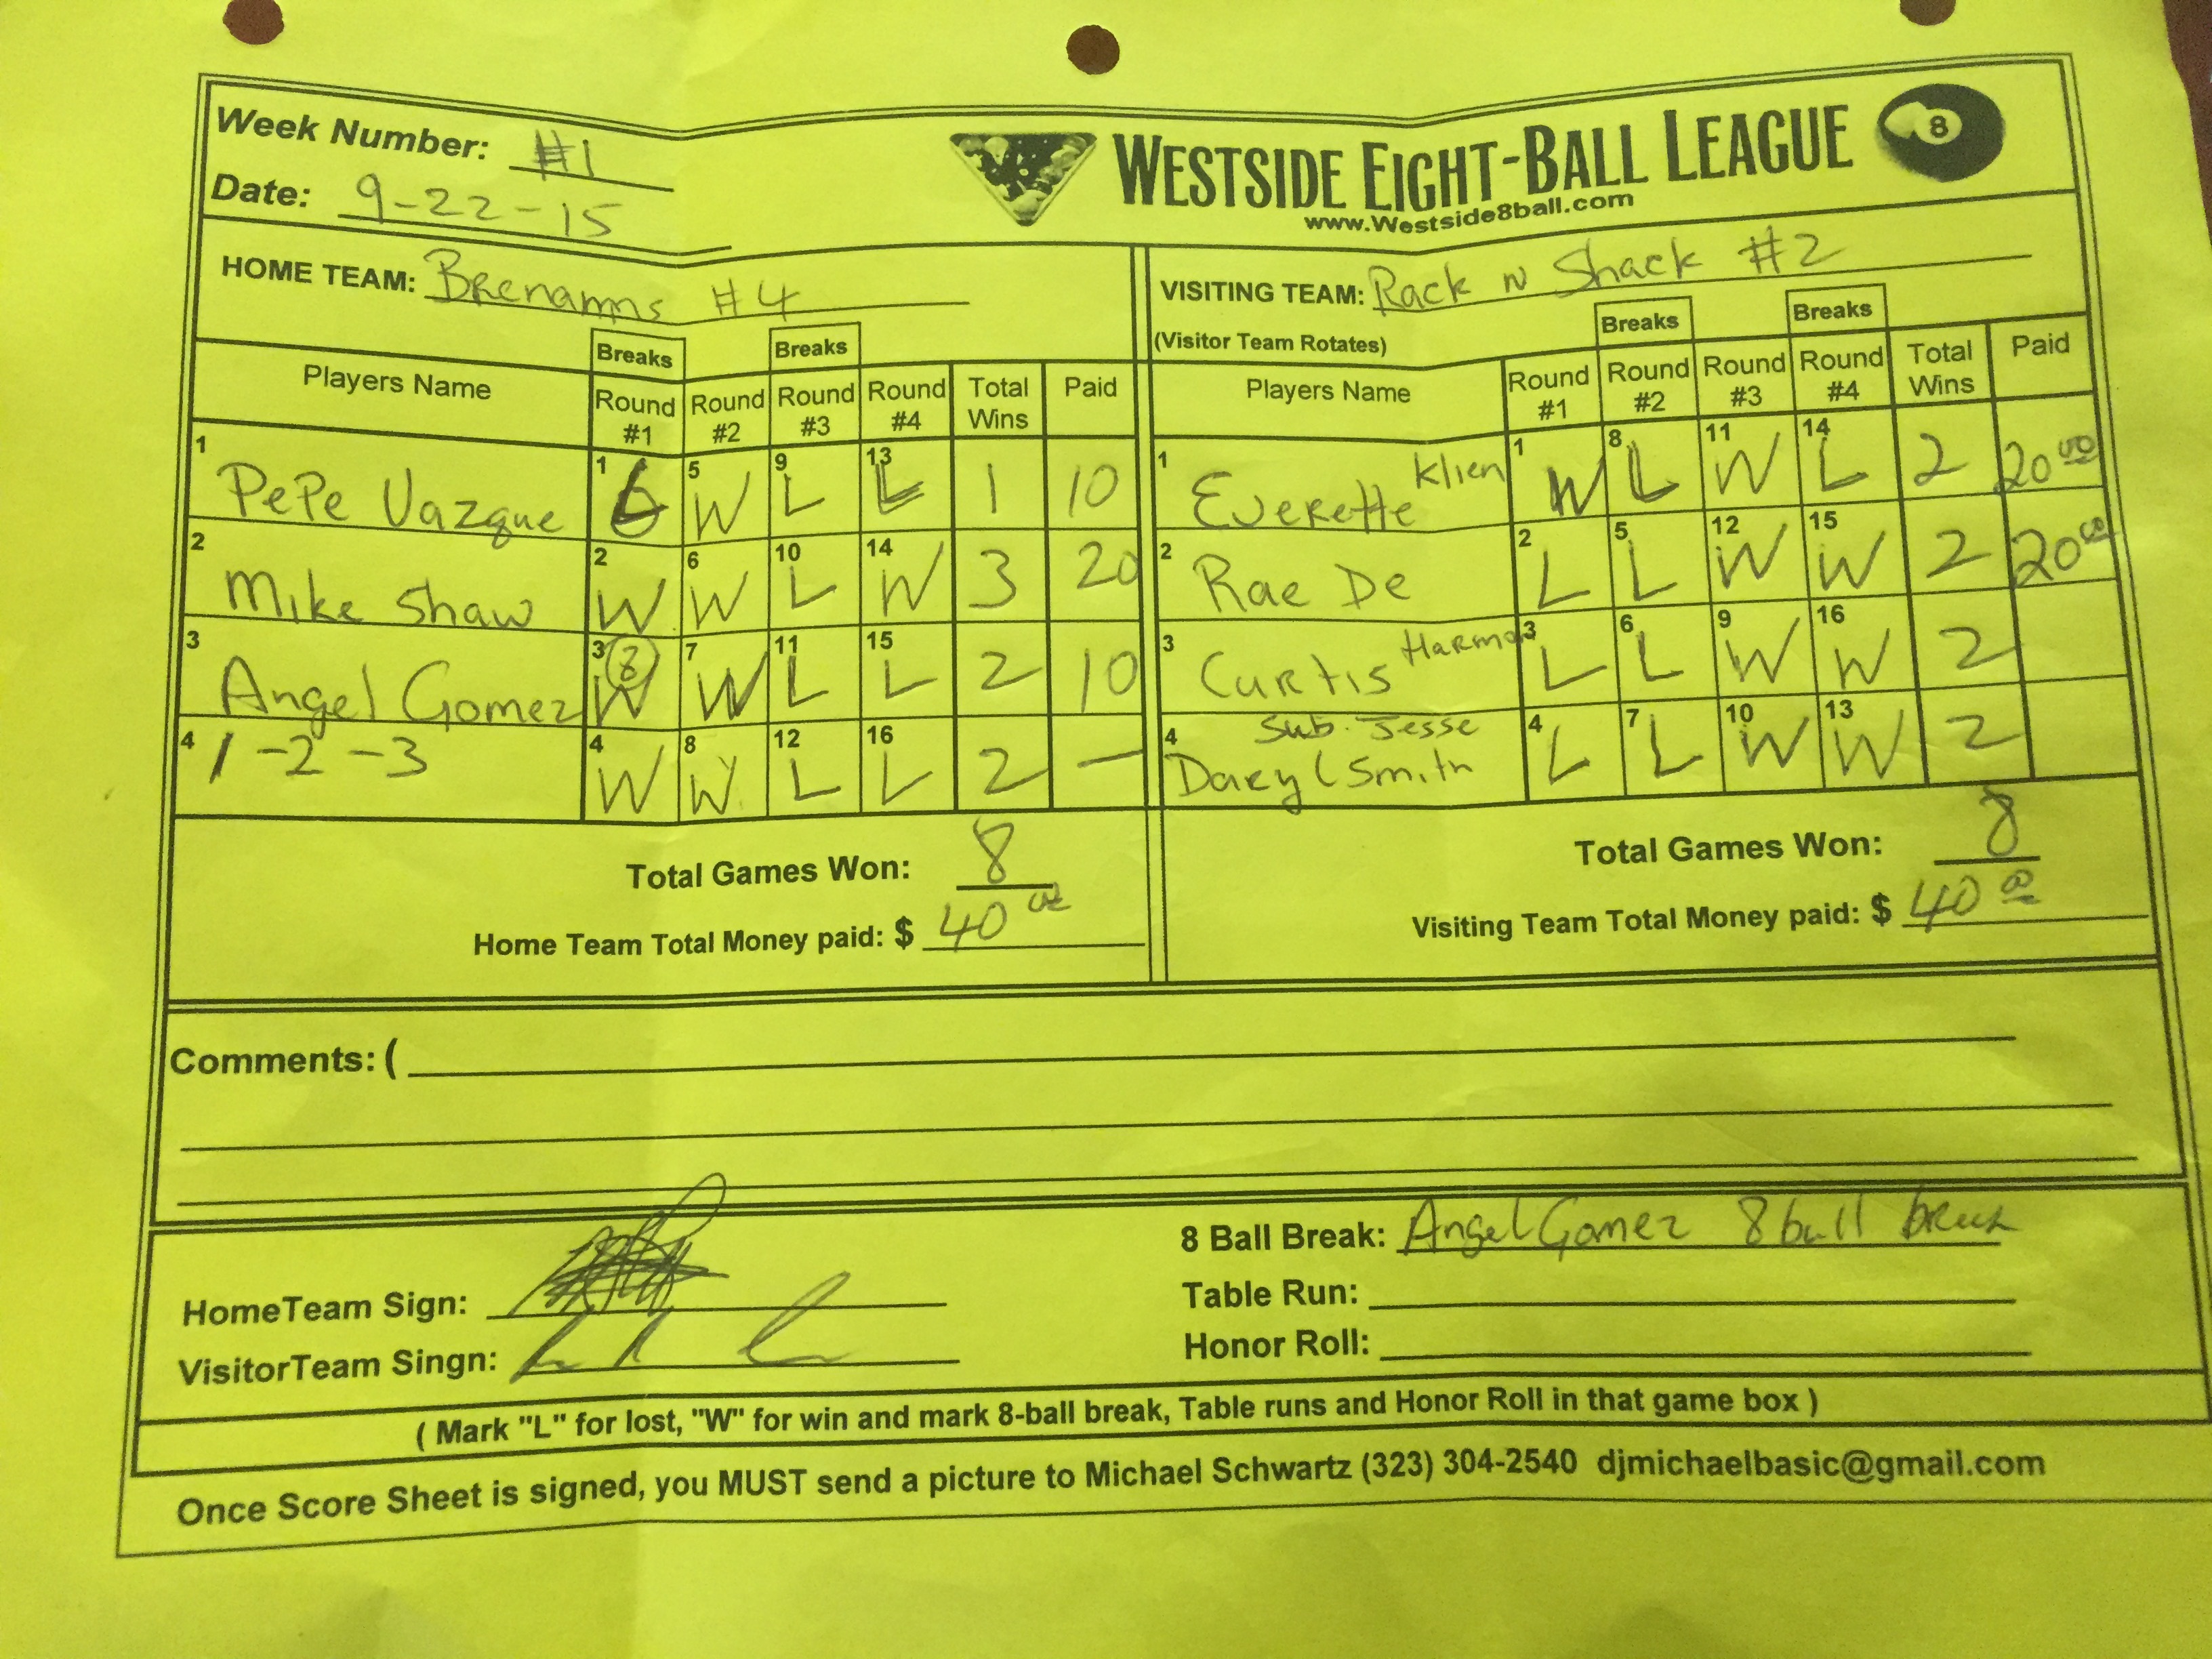 Week Number: #1
Date: 9-22-15
WESTSIDE EIGHT-BALL LEAGUE
8
www.Westside8ball.com
HOME TEAM: Brenanns #4
VISITING TEAM: Rack N Shack #2
(Visitor Team Rotates)
Breaks Breaks Breaks Breaks
Players Name Round #1 Round #2 Round #3 Round #4 Total Wins Paid
Players Name Round #1 Round #2 Round #3 Round #4 Total Wins Paid
1 PePe Vazque 1 L 5 W 9 L 13 L 1 10
1 Everette Klien 1 W 8 L 11 W 14 L 2 20 00
2 Mike Shaw 2 W 6 W 10 L 14 W 3 20
2 Rae De 2 L 5 L 12 W 15 W 2 20 00
3 Angel Gomez 3 8 W 7 W 11 L 15 L 2 10
3 Curtis Harmon 3 L 6 L 9 W 16 W 2
4 1-2-3 4 W 8 W 12 L 16 L 2 —
4 Sub. Jesse Daryl Smith 4 L 7 L 10 W 13 W 2
Total Games Won: 8
Total Games Won: 8
Home Team Total Money paid: $ 40 00
Visiting Team Total Money paid: $ 40 00
Comments: (
8 Ball Break: Angel Gomez 8 ball break
HomeTeam Sign:
Table Run:
VisitorTeam Singn:
Honor Roll:
( Mark "L" for lost, "W" for win and mark 8-ball break, Table runs and Honor Roll in that game box )
Once Score Sheet is signed, you MUST send a picture to Michael Schwartz (323) 304-2540 djmichaelbasic@gmail.com